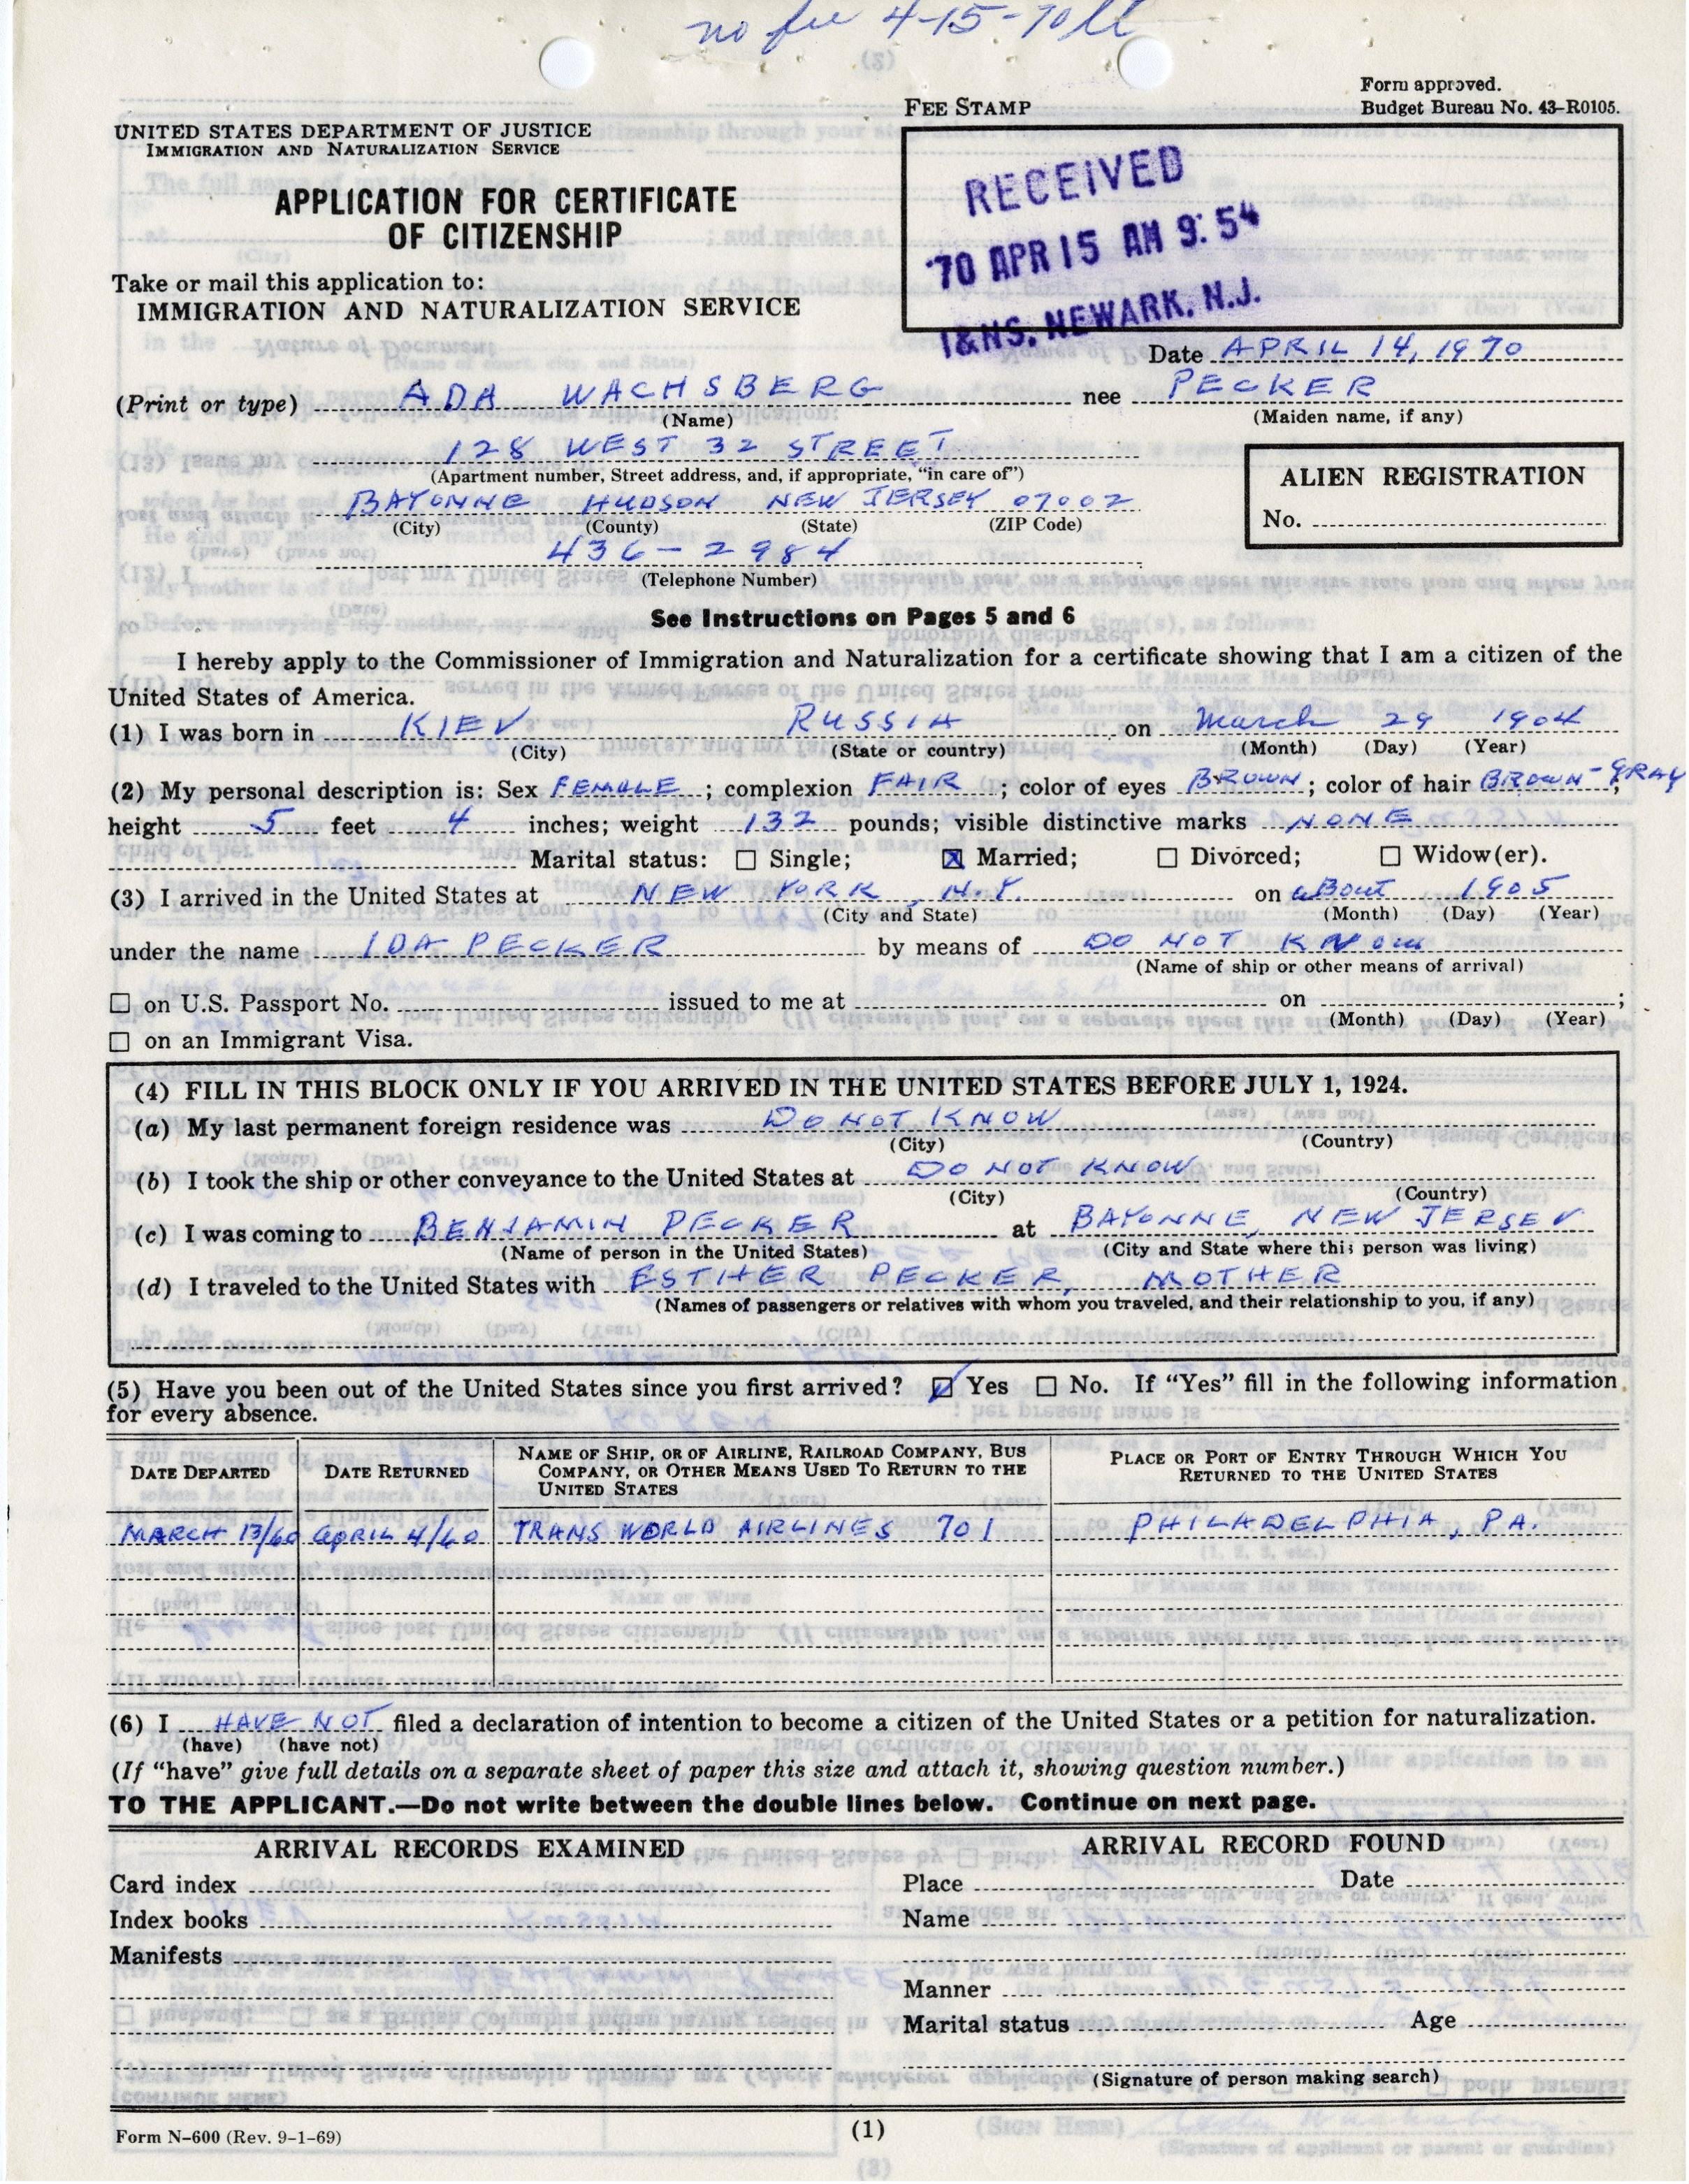 no fee 4-15-70
Form approved.
Budget Bureau No. 43-R0105.
FEE STAMP
UNITED STATES DEPARTMENT OF JUSTICE
IMMIGRATION AND NATURALIZATION SERVICE
RECEIVED
'70 APR 15 AM 9:54
I&NS. NEWARK, N.J.
APPLICATION FOR CERTIFICATE
OF CITIZENSHIP
Take or mail this application to:
IMMIGRATION AND NATURALIZATION SERVICE
Date APRIL 14, 1970
(Print or type) ADA WACHSBERG nee PECKER
(Name) (Maiden name, if any)
128 WEST 32 STREET
(Apartment number, Street address, and, if appropriate, "in care of")
BAYONNE HUDSON NEW JERSEY 07002
(City) (County) (State) (ZIP Code)
ALIEN REGISTRATION
No.
436-2984
(Telephone Number)
See Instructions on Pages 5 and 6
I hereby apply to the Commissioner of Immigration and Naturalization for a certificate showing that I am a citizen of the
United States of America.
(1) I was born in KIEV RUSSIA on March 29 1904
(City) (State or country) (Month) (Day) (Year)
(2) My personal description is: Sex FEMALE; complexion FAIR; color of eyes BROWN; color of hair BROWN-GRAY;
height 5 feet 4 inches; weight 132 pounds; visible distinctive marks NONE
Marital status: ☐ Single; ☒ Married; ☐ Divorced; ☐ Widow(er).
(3) I arrived in the United States at NEW YORK, N.Y. on aBout 1905
(City and State) (Month) (Day) (Year)
under the name IDA PECKER by means of DO NOT KNOW
(Name of ship or other means of arrival)
☐ on U.S. Passport No. issued to me at on ;
(Month) (Day) (Year)
☐ on an Immigrant Visa.
(4) FILL IN THIS BLOCK ONLY IF YOU ARRIVED IN THE UNITED STATES BEFORE JULY 1, 1924.
(a) My last permanent foreign residence was DO NOT KNOW
(City) (Country)
(b) I took the ship or other conveyance to the United States at DO NOT KNOW
(City) (Country)
(c) I was coming to BENJAMIN PECKER at BAYONNE, NEW JERSEY
(Name of person in the United States) (City and State where this person was living)
(d) I traveled to the United States with ESTHER PECKER, MOTHER
(Names of passengers or relatives with whom you traveled, and their relationship to you, if any)
(5) Have you been out of the United States since you first arrived? ☑ Yes ☐ No. If "Yes" fill in the following information
for every absence.
DATE DEPARTED DATE RETURNED NAME OF SHIP, OR OF AIRLINE, RAILROAD COMPANY, BUS COMPANY, OR OTHER MEANS USED TO RETURN TO THE UNITED STATES PLACE OR PORT OF ENTRY THROUGH WHICH YOU RETURNED TO THE UNITED STATES
MARCH 13/60 APRIL 4/60 TRANS WORLD AIRLINES 701 PHILADELPHIA, PA.
(6) I HAVE NOT filed a declaration of intention to become a citizen of the United States or a petition for naturalization.
(have) (have not)
(If "have" give full details on a separate sheet of paper this size and attach it, showing question number.)
TO THE APPLICANT.—Do not write between the double lines below. Continue on next page.
ARRIVAL RECORDS EXAMINED ARRIVAL RECORD FOUND
Card index Place Date
Index books Name
Manifests
Manner
Marital status Age
(Signature of person making search)
Form N-600 (Rev. 9-1-69) (1)